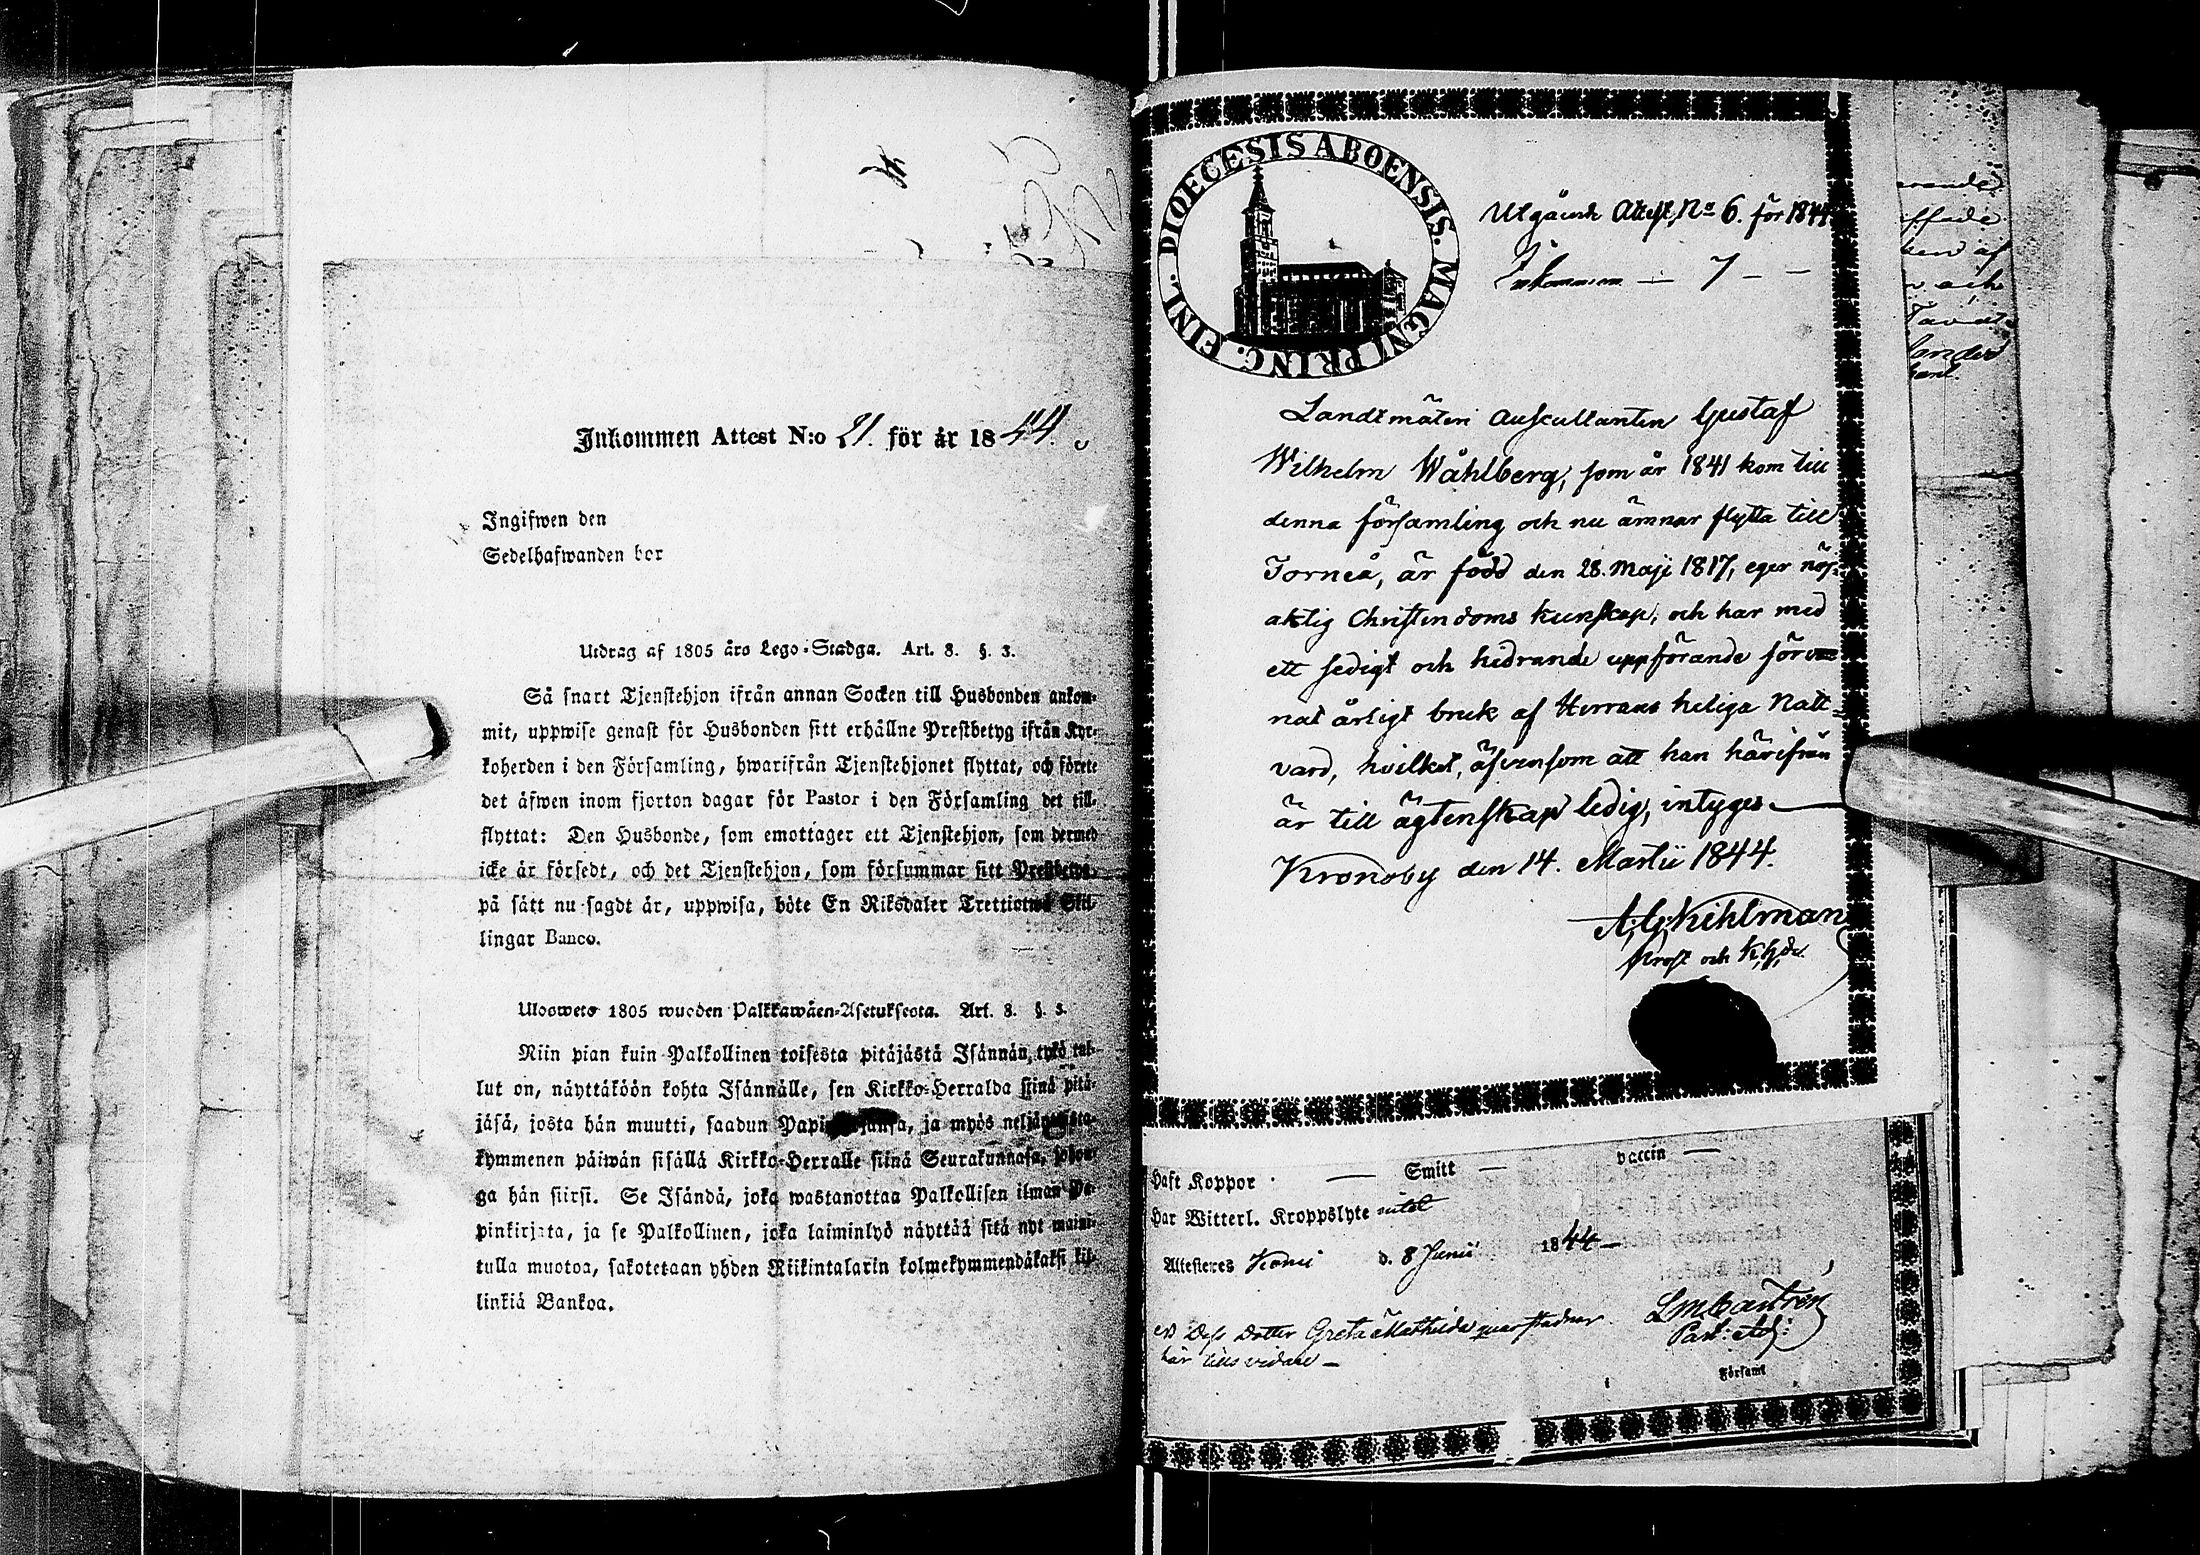 Inkommen Attest N:o 21. för år 1844.
Ingifwen den
Sedelhafwanden bor
Utdrag af 1805 års Lego-Stadga. Art. 8. §. 3.
Så snart Tjenstehjon ifrån annan Socken till Husbonden ankom-
mit, uppwise genast för Husbonden sitt erhållne Prestbetyg ifrån Kyr-
koherden i den Församling, hwarifrån Tjenstehjonet flyttat, och förete
det äfwen inom fjorton dagar för Pastor i den Församling det till-
flyttat: Den Husbonde, som emottager ett Tjenstehjon, som dermed
icke är försedt, och det Tjenstehjon, som försummar sitt Prestbetyg,
på sätt nu sagdt är, uppwisa, böte En Riksdaler Trettiotwå Skil-
lingar Banco.
Uloswets 1805 wuoden Palkkawäen-Asetuksesta. Art. 8. §. 3.
Niin pian kuin Palkollinen toisesta pitäjästä Isännän, tykö tul-
lut on, näyttäköön kohta Isännälle, sen Kirkko-Herralda siinä pitä-
jäsä, josta hän muutti, saadun ja myös
kymmenen päiwän sisällä Kirkko-Herralle siinä Seurakunnasa, johon-
ga hän siirsi. Se Isändä, joka wastanottaa Palkollisen ilman Pa-
pinkirjata, ja se Palkollinen, joka laiminlyö näyttää sitä nyt maini-
tulla muotoa, sakotetaan yhden Riikintalarin kolmekymmendäkaksi kil-
linkiä Bankoa.
DIOECESIS ABOENSIS. MAGNI PRINC. FINL.
Utgående Attest N:o 6. för 1844
Inkommen — 7 — —
Landtmäteri Auscultanten Gustaf
Wilhelm Wåhlberg, som år 1841 kom till
denna församling och nu ämnar flytta till
Torneå, är född den 28. Maji 1817, eger nöj-
aktig Christendoms kunskap, och har med
ett sedigt och hedrande uppförande före-
nat årligt bruk af Herrans heliga Natt-
vard, hvilket, äfvensom att han härifrån
är till ägtenskap ledig, intygas.
Kronoby den 14. Martii 1844.
A. G. Kihlman
Prost och K.h.de
Haft Koppor — Smitt — vaccin —
Har Witterl. Kroppslyte intet
Attesteres Kemi d. 8 Junii 1844 —
L M Castrén
Past: Adj:
Dess Dotter Greta Mathilda quarstadnar
här tills vidare —
Församl